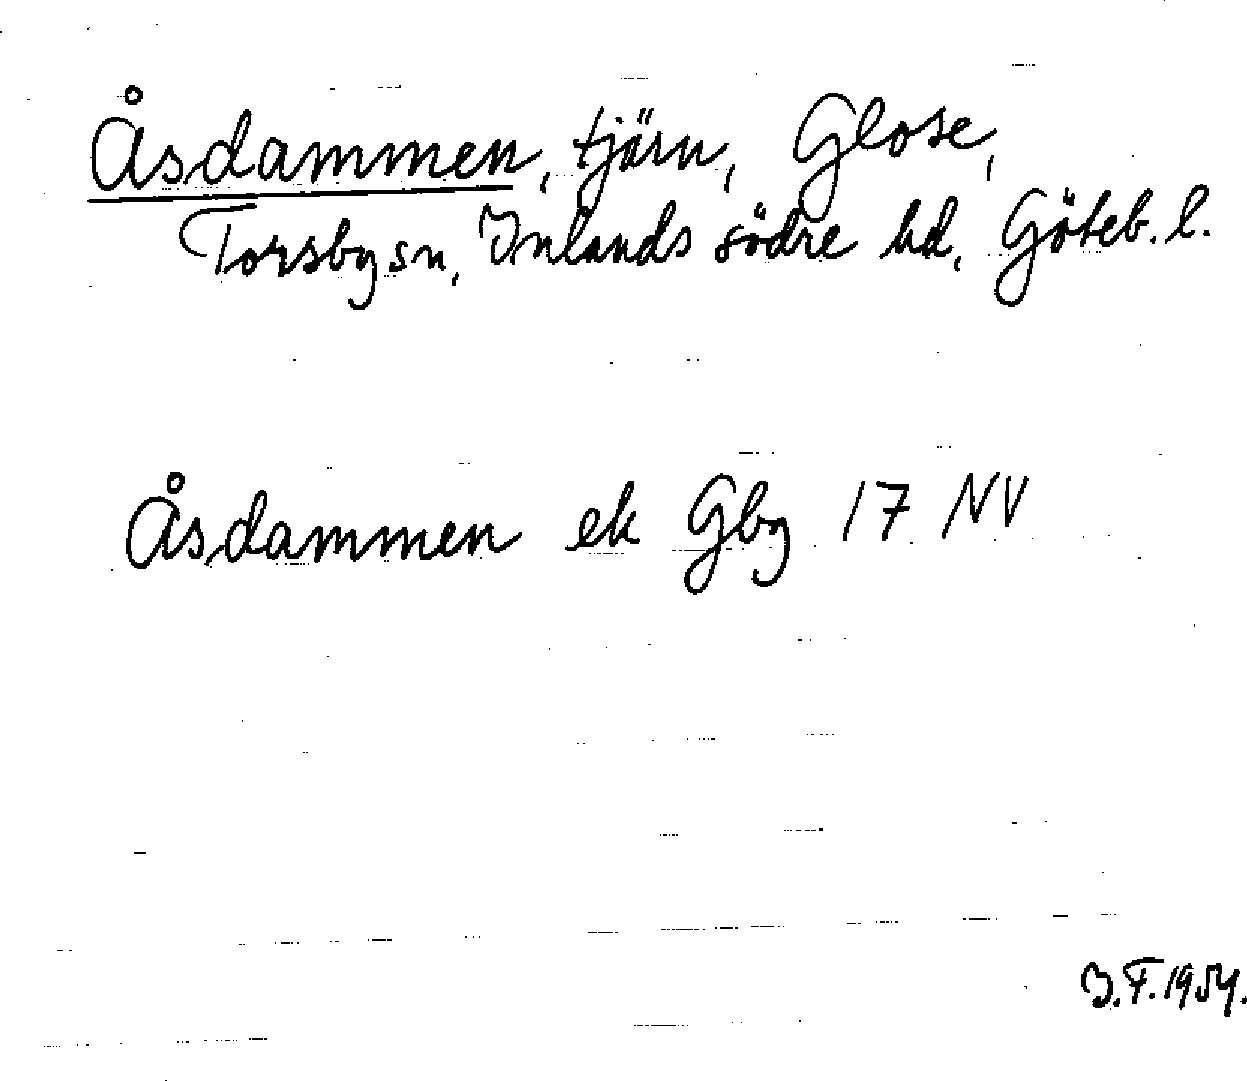 Åsdammen, tjärn, Glose,
Torsby sn, Inlands södre hd, Göteb. l.
Åsdammen ek Gbg 17 NV
I.F. 1954.